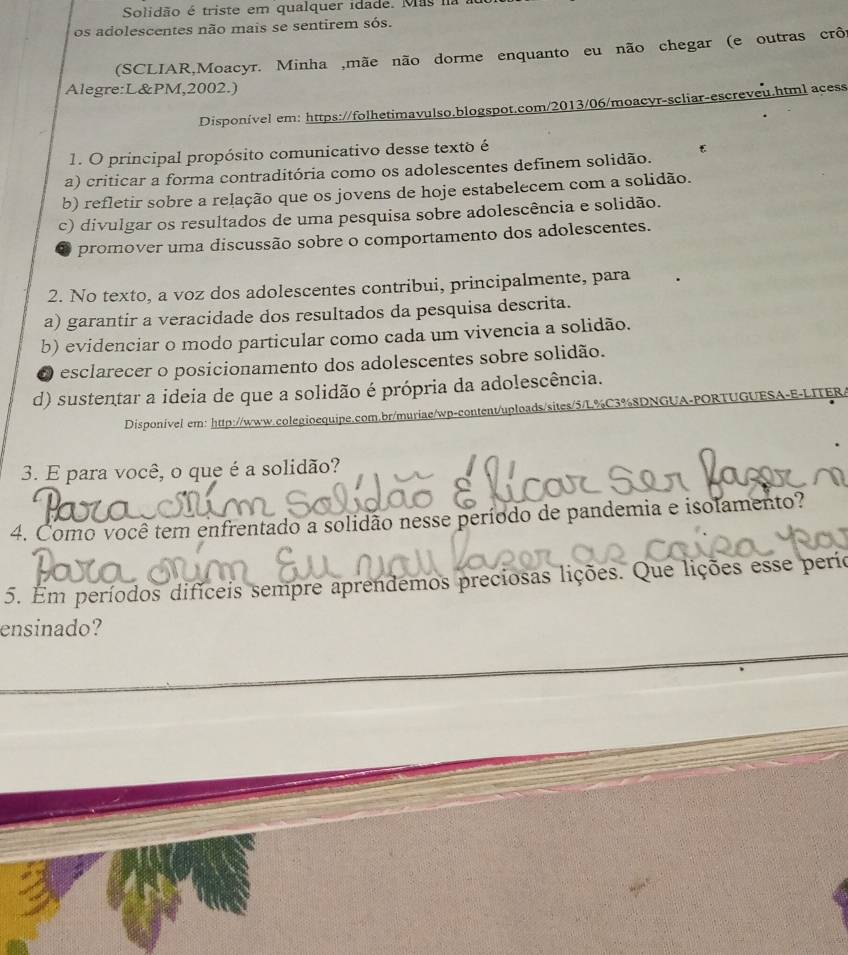 Solidão é triste em qualquer idade. Mas há
os adolescentes não mais se sentirem sós.
(SCLIAR,Moacyr. Minha ,mãe não dorme enquanto eu não chegar (e outras crô
Alegre:L&PM,2002.)
Disponível em: https://folhetimavulso.blogspot.com/2013/06/moacyr-scliar-escreveu.html acess
1. O principal propósito comunicativo desse texto é
a) criticar a forma contraditória como os adolescentes definem solidão.
b) refletir sobre a relação que os jovens de hoje estabelecem com a solidão.
c) divulgar os resultados de uma pesquisa sobre adolescência e solidão.
promover uma discussão sobre o comportamento dos adolescentes.
2. No texto, a voz dos adolescentes contribui, principalmente, para
a) garantir a veracidade dos resultados da pesquisa descrita.
b) evidenciar o modo particular como cada um vivencia a solidão.
esclarecer o posicionamento dos adolescentes sobre solidão.
d) sustentar a ideia de que a solidão é própria da adolescência.
Disponível em: http://www.colegioequipe.com.br/muriae/wp-content/uploads/sites/5/L%C3%8DNGUA-PORTUGUESA-E-LITERA
3. E para você, o que é a solidão?
Para mim Solidão é ficar Sen fazer n
4. Como você tem enfrentado a solidão nesse período de pandemia e isolamento?
Para mim Eu vou fazer as coisa
5. Em períodos difíceis sempre aprendemos preciosas lições. Que lições esse perío
ensinado?